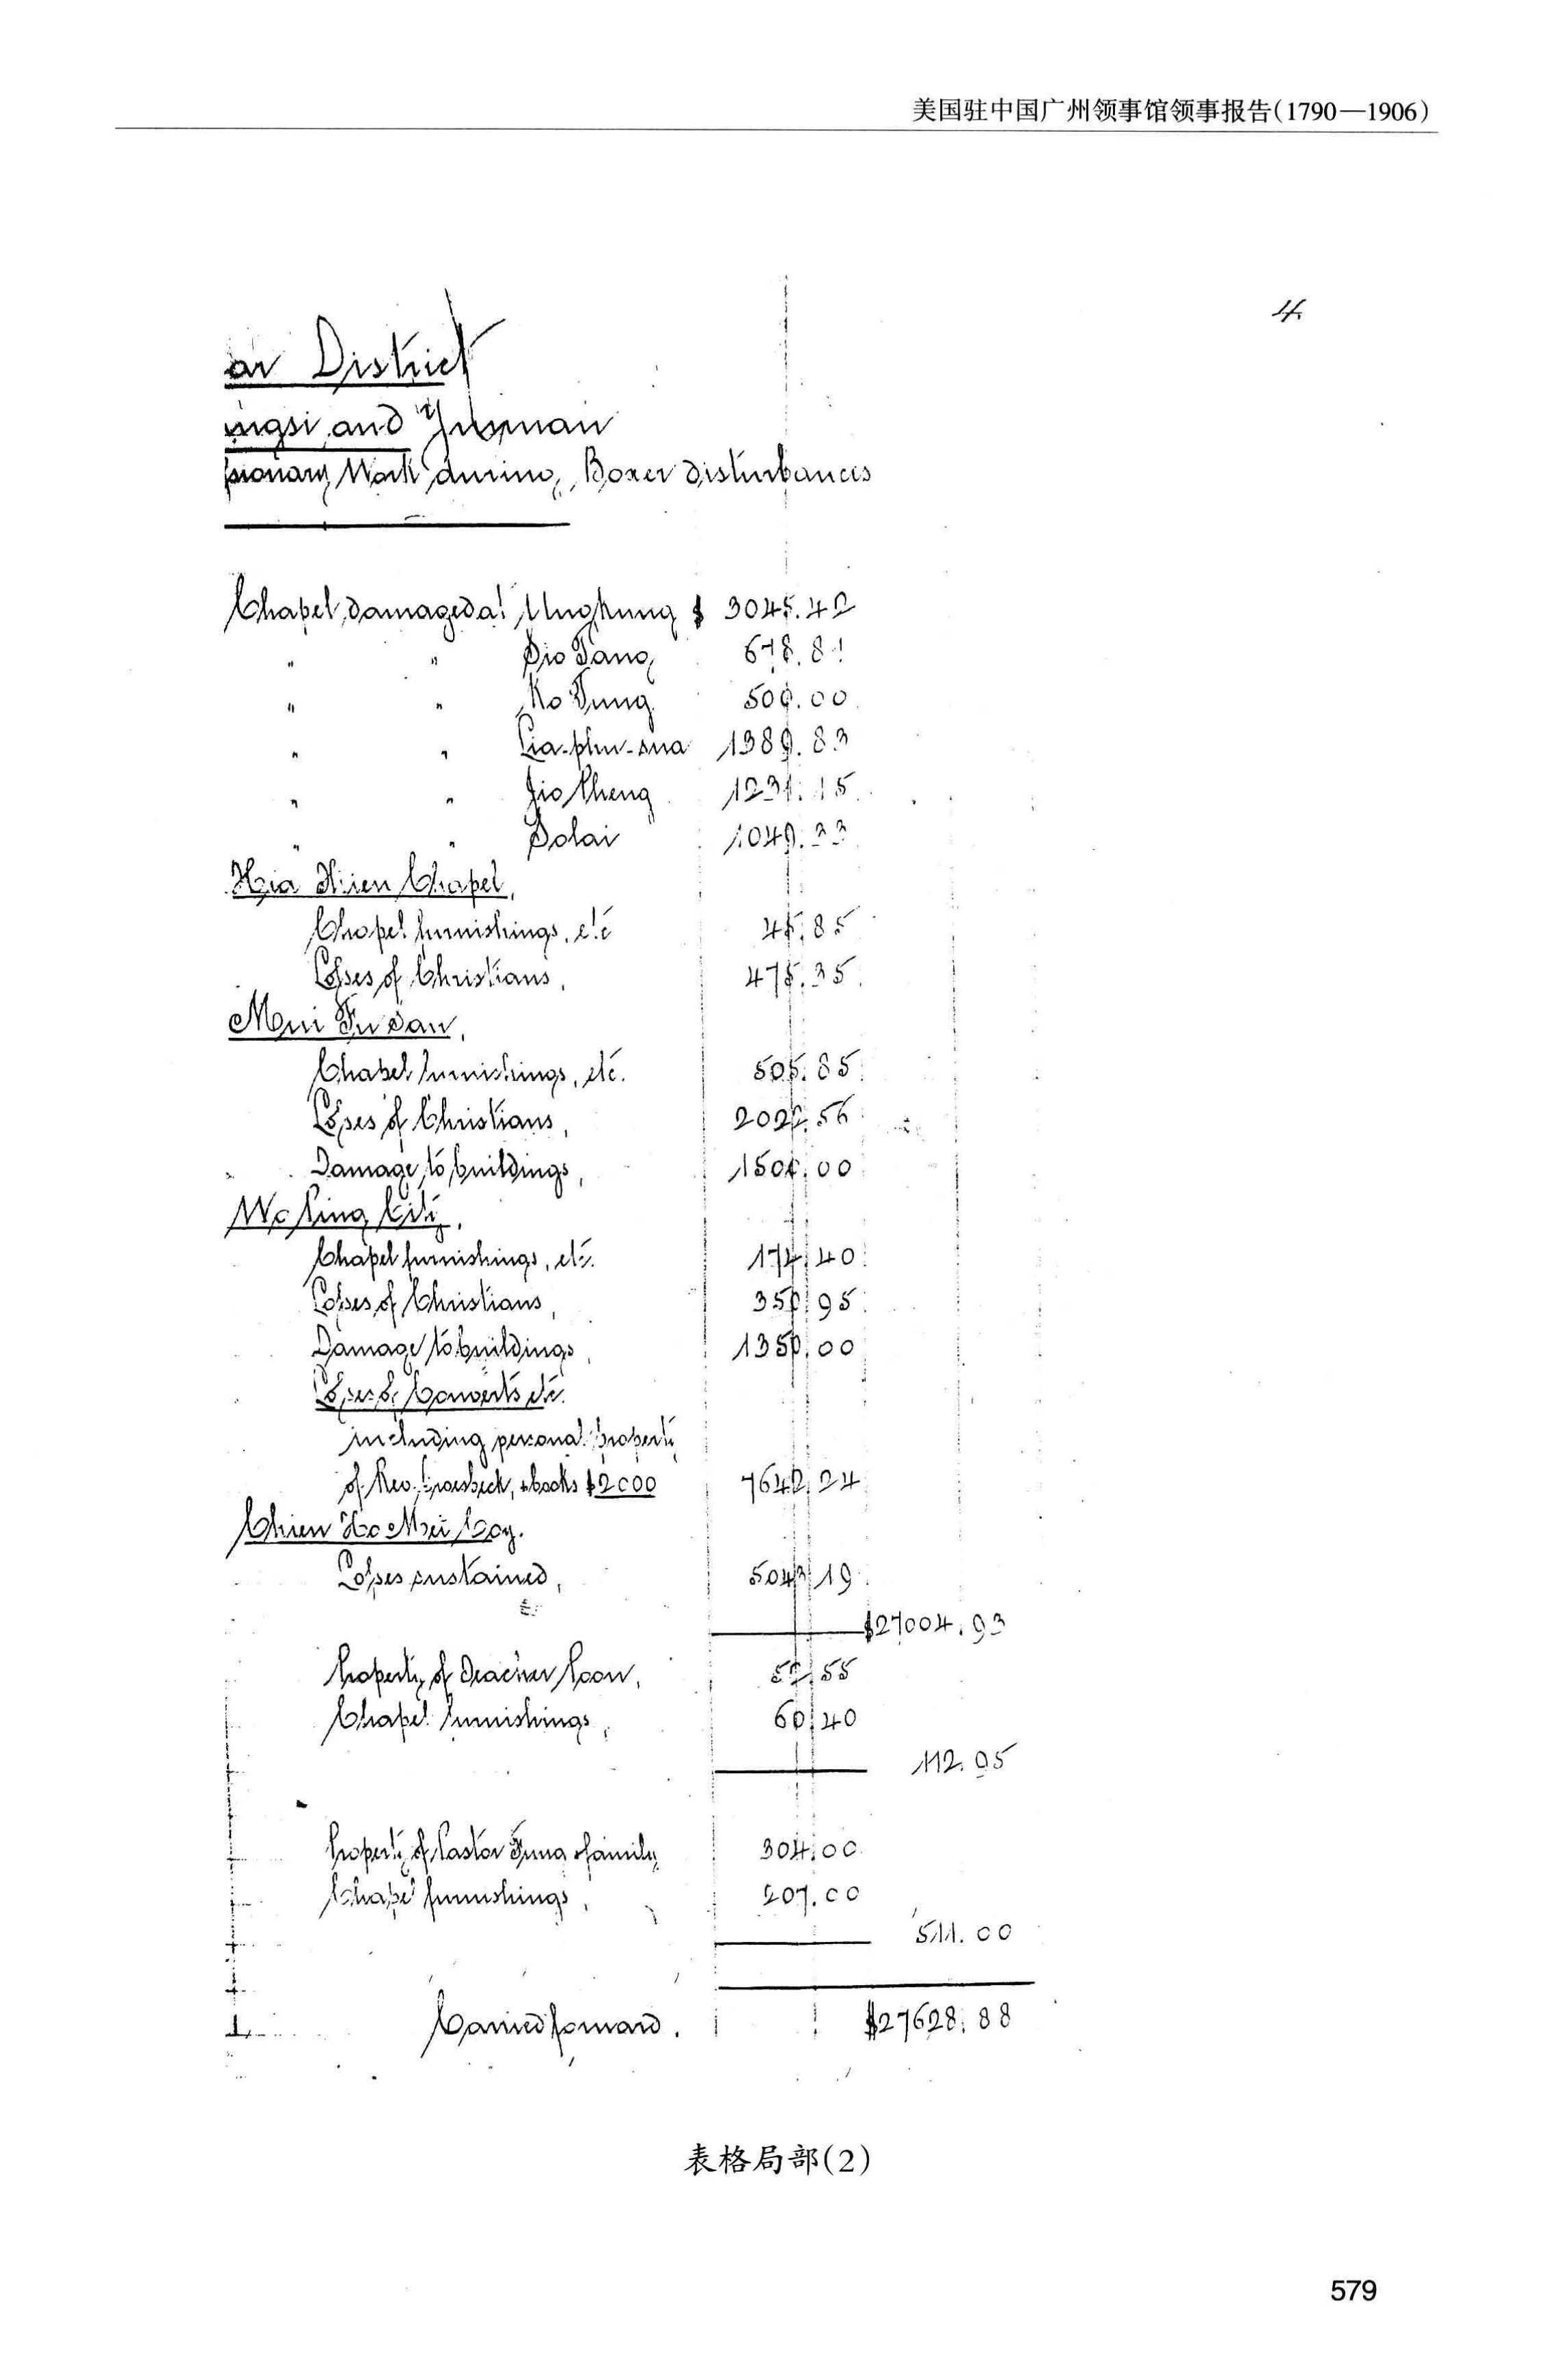 美国驻中国广州领事馆领事报告(1790—1906)
4.
ar District
ingsi and
ssionary Work during Boxer disturbances
Chapel damaged at Ungkung $ 3045.42
" " 678.81
" " Ko Tung 500.00
" " 1389.83
" " 1231.15
" " Dolai 1049.33
Chapel,
Chapel furnishings, etc 45.85
Losses of Christians, 475.35
Chapel furnishings, etc. 505.85
Losses of Christians, 2022.56
Damage to buildings, 1500.00
City,
Chapel furnishings, etc. 174.40
Losses of Christians, 350.95
Damage to buildings, 1350.00
Converts etc.
including personal property
of Rev. Groesbeck, books $2000 7642.24
Losses sustained, 5043.19
$27004.93
Property of 55
Chapel furnishings, 60.40
112.95
Property of Pastor Tung & family 304.00
Chapel furnishings, 207.00
511.00
Carried forward. $27628.88
表格局部(2)
579